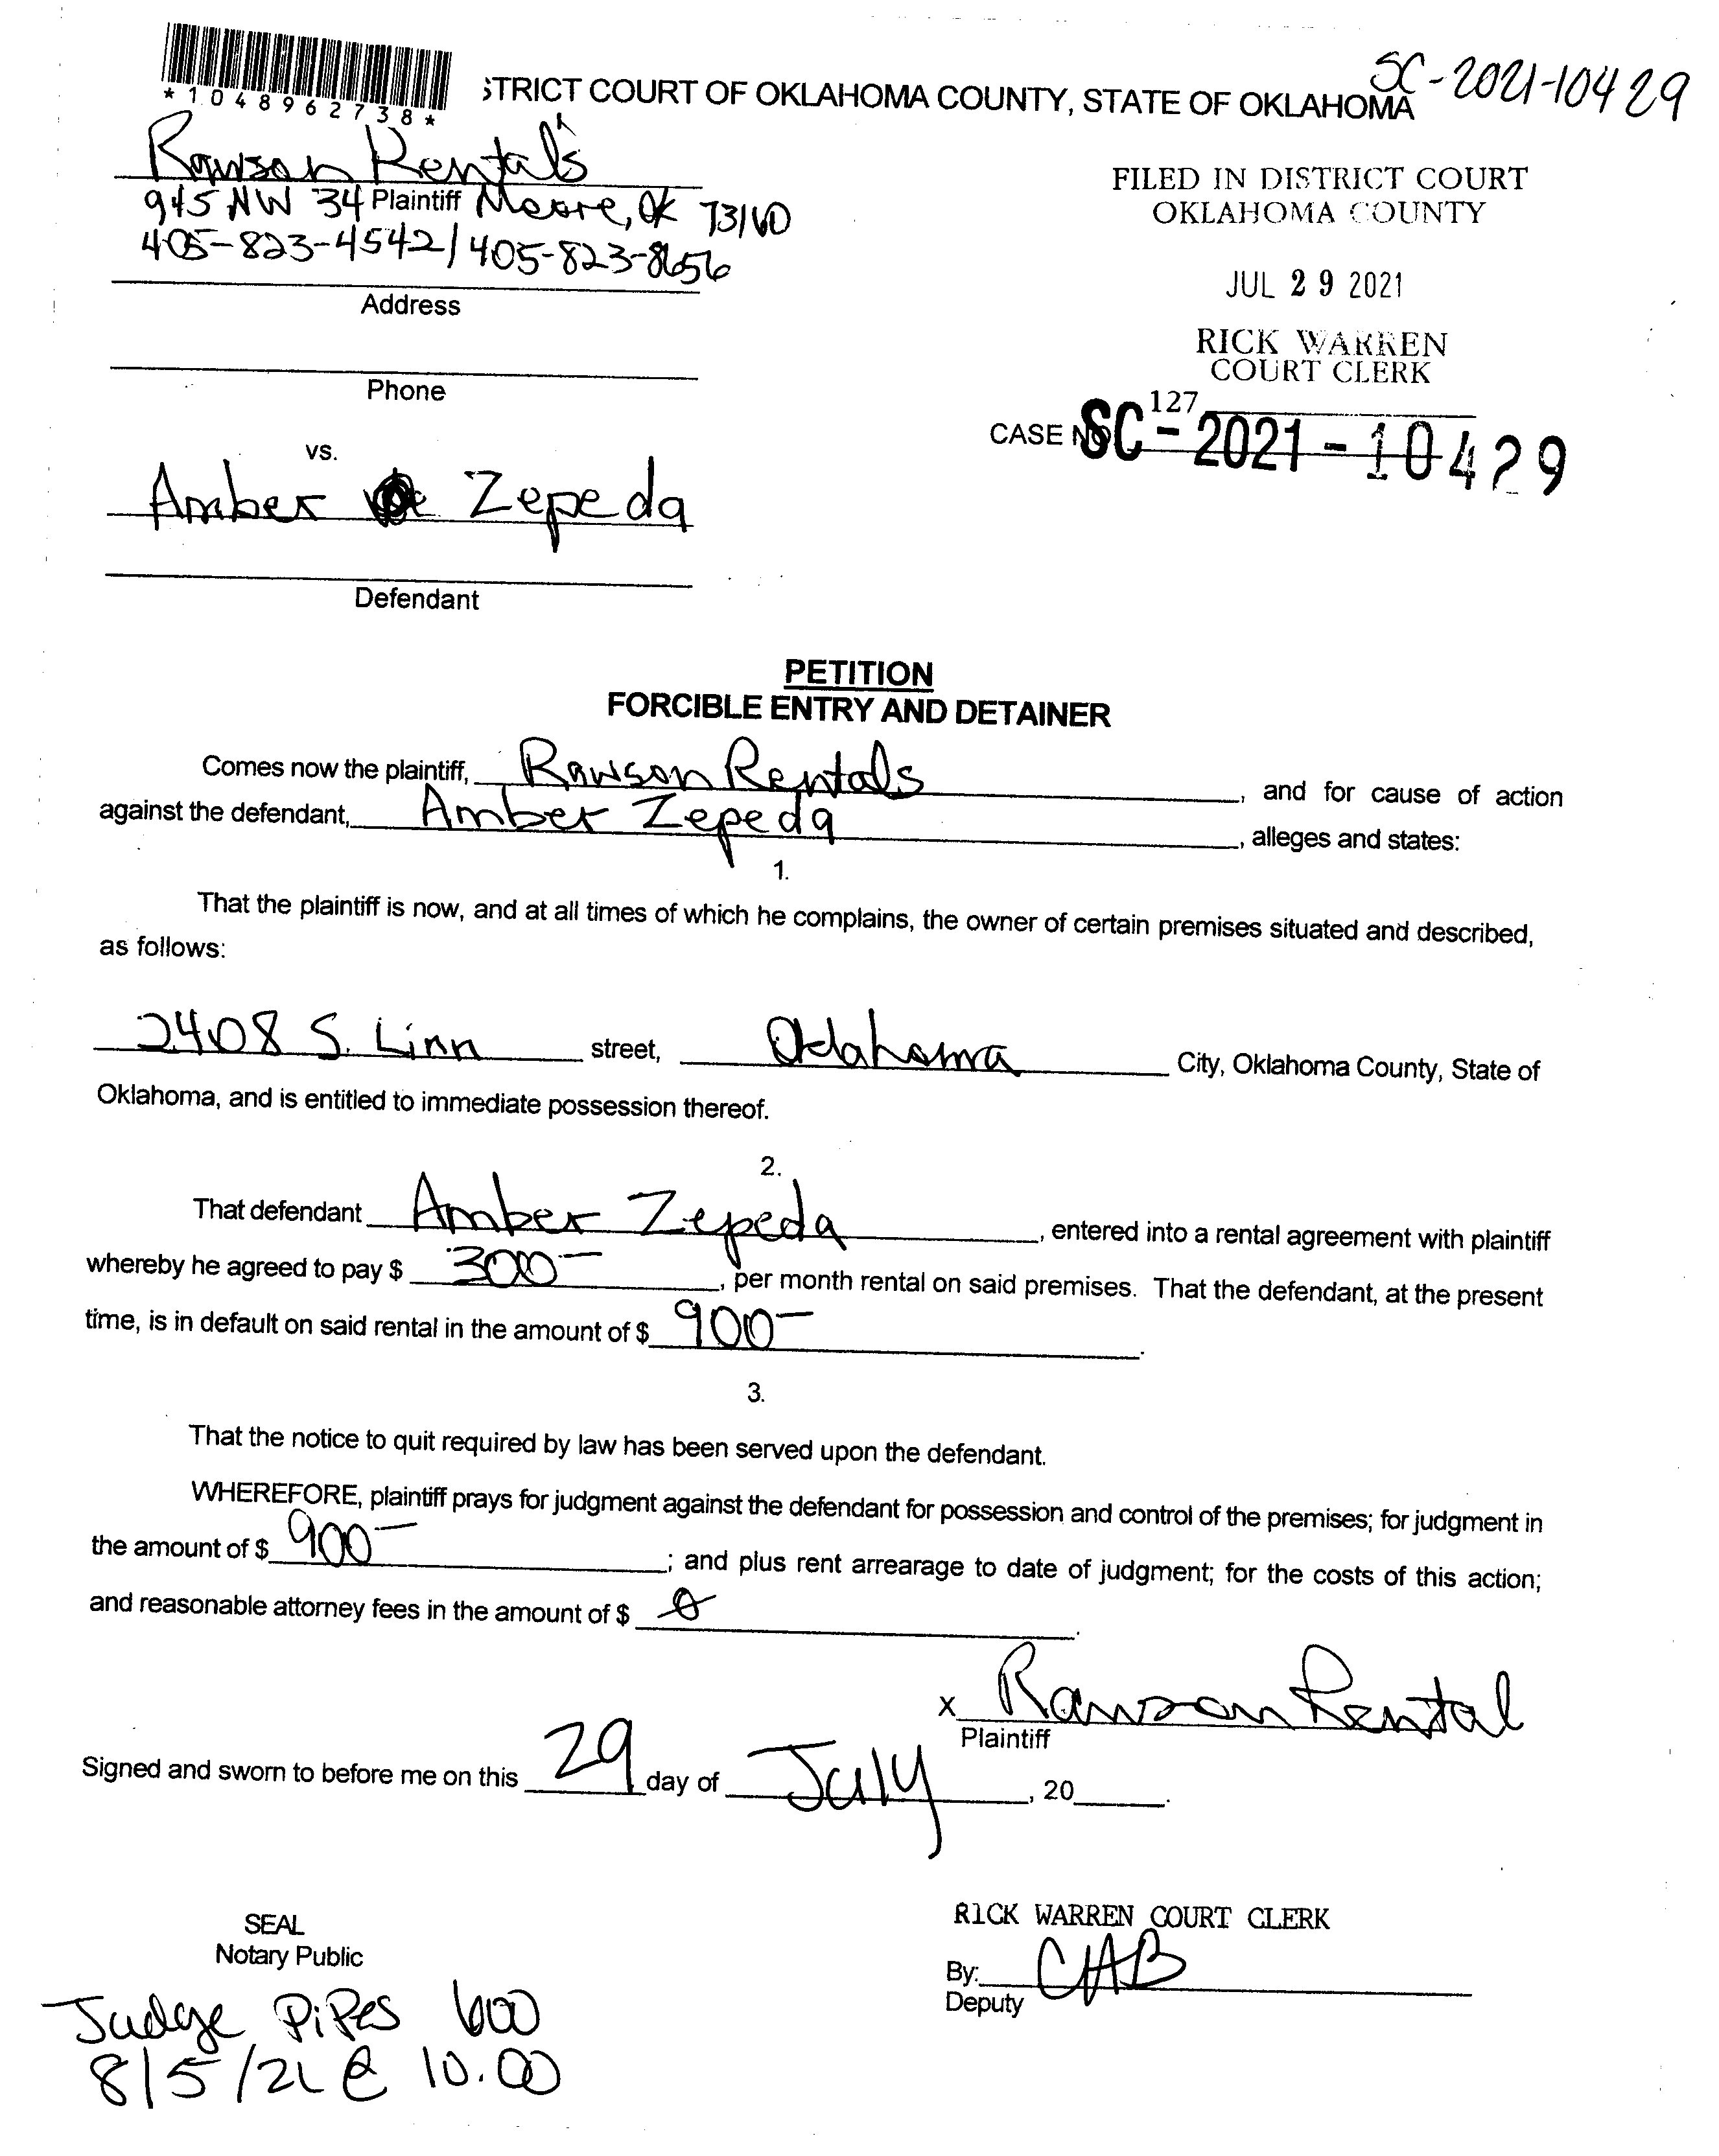 *1048962738*
STRICT COURT OF OKLAHOMA COUNTY, STATE OF OKLAHOMA
SC-2021-10429
Rawson Rentals
945 NW 34 Plaintiff Moore, OK 73160
405-823-4542/405-823-8656
Address
Phone
FILED IN DISTRICT COURT
OKLAHOMA COUNTY
JUL 29 2021
RICK WARREN
COURT CLERK
127
CASE NO SC-2021-10429
vs.
Amber Zepeda
Defendant
PETITION
FORCIBLE ENTRY AND DETAINER
Comes now the plaintiff, Rawson Rentals, and for cause of action
against the defendant, Amber Zepeda, alleges and states:
1.
That the plaintiff is now, and at all times of which he complains, the owner of certain premises situated and described,
as follows:
2408 S. Linn street, Oklahoma City, Oklahoma County, State of
Oklahoma, and is entitled to immediate possession thereof.
2.
That defendant Amber Zepeda, entered into a rental agreement with plaintiff
whereby he agreed to pay $ 300-, per month rental on said premises. That the defendant, at the present
time, is in default on said rental in the amount of $ 900-.
3.
That the notice to quit required by law has been served upon the defendant.
WHEREFORE, plaintiff prays for judgment against the defendant for possession and control of the premises; for judgment in
the amount of $ 900-; and plus rent arrearage to date of judgment; for the costs of this action;
and reasonable attorney fees in the amount of $ 0.
X Rawson Rental
Plaintiff
Signed and sworn to before me on this 29 day of July, 20____.
SEAL
Notary Public
RICK WARREN COURT CLERK
By: CAB
Deputy
Judge PiPes 600
8/5/21 @ 10.00